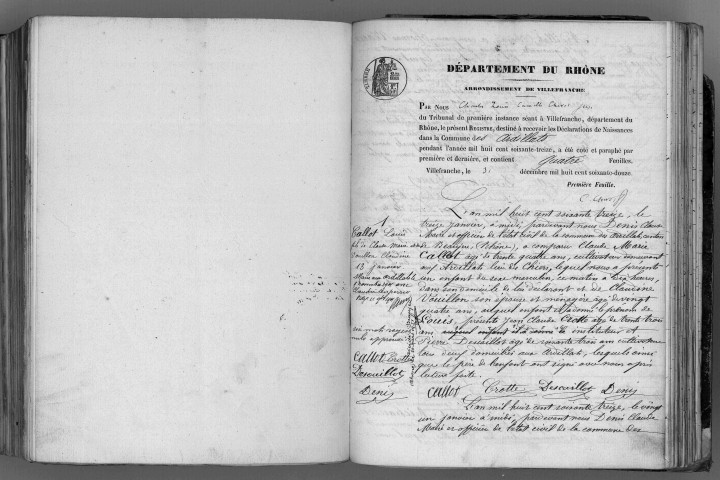 DÉPARTEMENT DU RHÔNE
ARRONDISSEMENT DE VILLEFRANCHE
PAR NOUS
du Tribunal de première instance séant à Villefranche, département du
Rhône, le présent REGISTRE, destiné à recevoir les Déclarations de Naissances
dans la Commune des Ardillats
pendant l'année mil huit cent soixante-treize, a été coté et paraphé par
première et dernière, et contient quatre Feuilles.
Villefranche, le 31 décembre mil huit cent soixante-douze.
Première Feuille.
L'an mil huit cent soixante treize, le
treize janvier, à midi, pardevant nous Denis Claude
Marie officier de l'état civil de la commune des Ardillats canton
de Beaujeu, (Rhône), a comparu Claude Marie
Callot âgé de trente quatre ans, cultivateur demeurant
aux Ardillats lieu des Chiers, lequel nous a présenté
un enfant du sexe masculin, ce matin à six heures,
dans son domicile de lui déclarant et de Claudine
Vouillon son épouse et ménagère âgée de vingt
quatre ans, auquel enfant il a donné le prénom de
Louis, présents Jean Claude Crotte âgé de trente trois
ans instituteur et
Pierre Descuillot âgé de soixante trois ans cultivateur
tous deux domiciliés aux Ardillats, lesquels ainsi
que le père de l'enfant ont signé avec nous après
lecture faite.
Callot Crotte Descuillot Denis
L'an mil huit cent soixante treize, le vingt
un janvier à midi, pardevant nous Denis Claude
Marie officier de l'état civil de la commune des
1
Callot Louis
fils de Claude Marie et de
Vouillon Claudine
13 janvier
six mots rayés
nuls approuvé
Callot Crotte
Descuillot
Denis